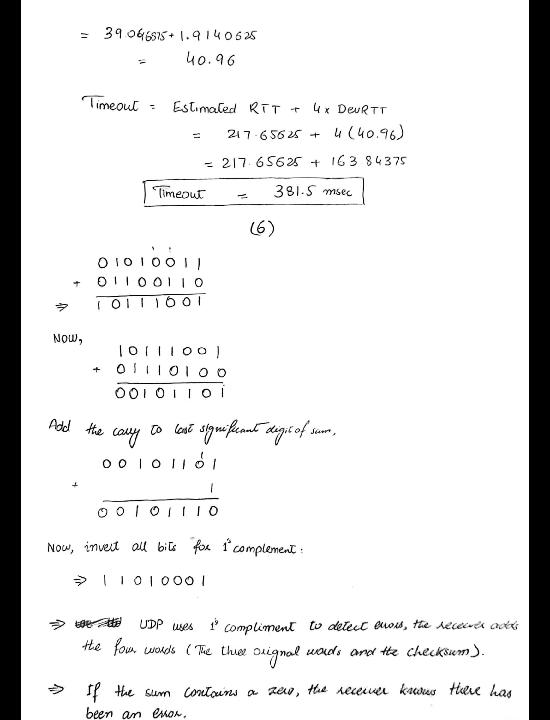 = 39.0646875 + 1.9140625
= 40.96
Timeout = Estimated RTT + 4 x DevRTT
= 217.65625 + 4 (40.96)
= 217.65625 + 163.84375
Timeout = 381.5 msec
(6)
1 1
0 1 0 1 0 0 1 1
+ 0 1 1 0 0 1 1 0
⇒ 1 0 1 1 1 0 0 1
Now,
1 0 1 1 1 0 0 1
+ 0 1 1 1 0 1 0 0
0 0 1 0 1 1 0 1
Add the carry to last significant digit of sum,
1
0 0 1 0 1 1 0 1
+ 1
0 0 1 0 1 1 1 0
Now, invert all bits for 1's complement:
⇒ 1 1 0 1 0 0 0 1
⇒ UDP uses 1's compliment to detect errors, the receiver adds
the four words (The three orignal words and the checksum).
⇒ If the sum contains a zero, the receiver knows there has
been an error.